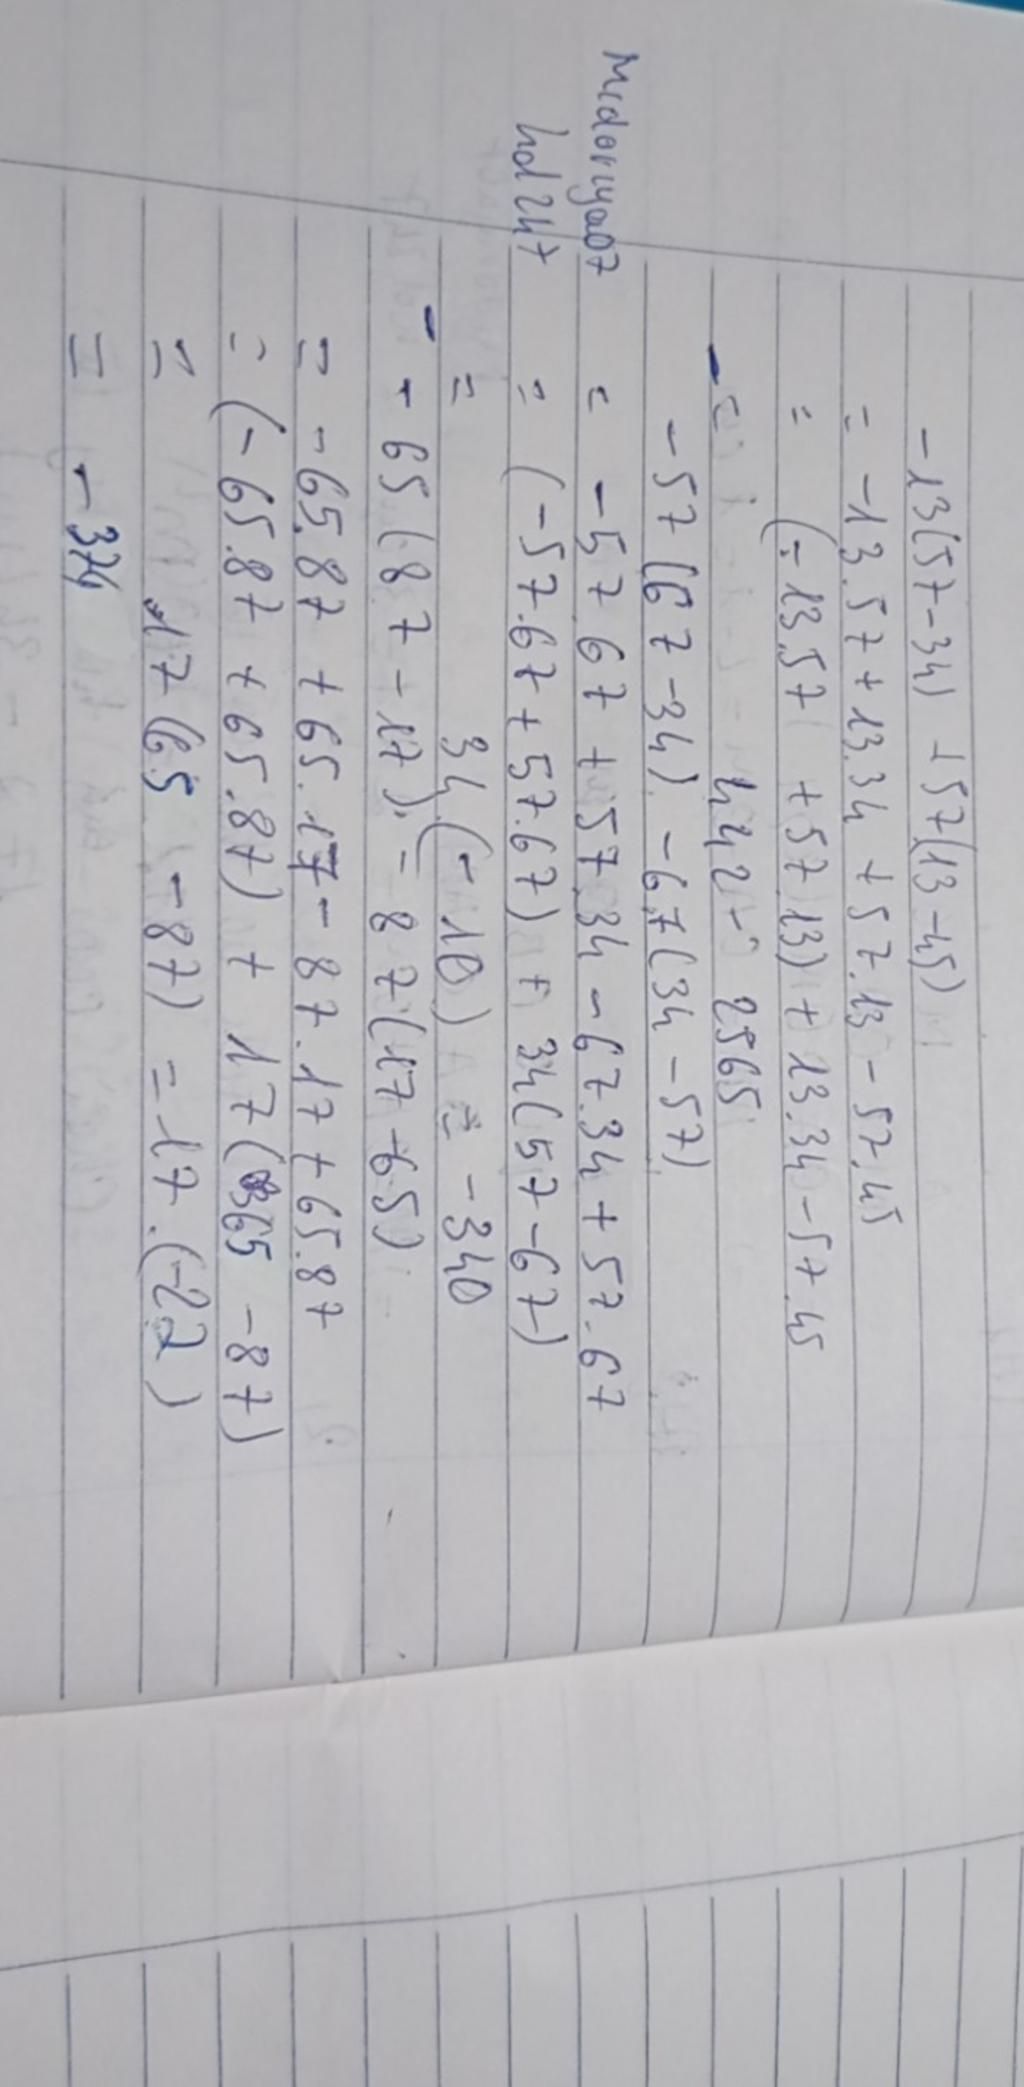 -13(57-34) + 57(13-45)
= -13.57 + 13.34 + 57.13 - 57.45
= (-13.57 + 57.13) + 13.34 - 57.45
442 - 2565
-57(67-34) - 67(34-57)
Midoriya07 = -57.67 + 57.34 - 67.34 + 57.67
hd247 = (-57.67 + 57.67) + 34(57-67)
= 34(-10) = -340
- 65(87-17) - 87(17+65)
= -65.87 + 65.17 - 87.17 + 65.87
= (-65.87 + 65.87) + 17(65 - 87)
= 17(65 - 87) = 17.(-22)
= -374